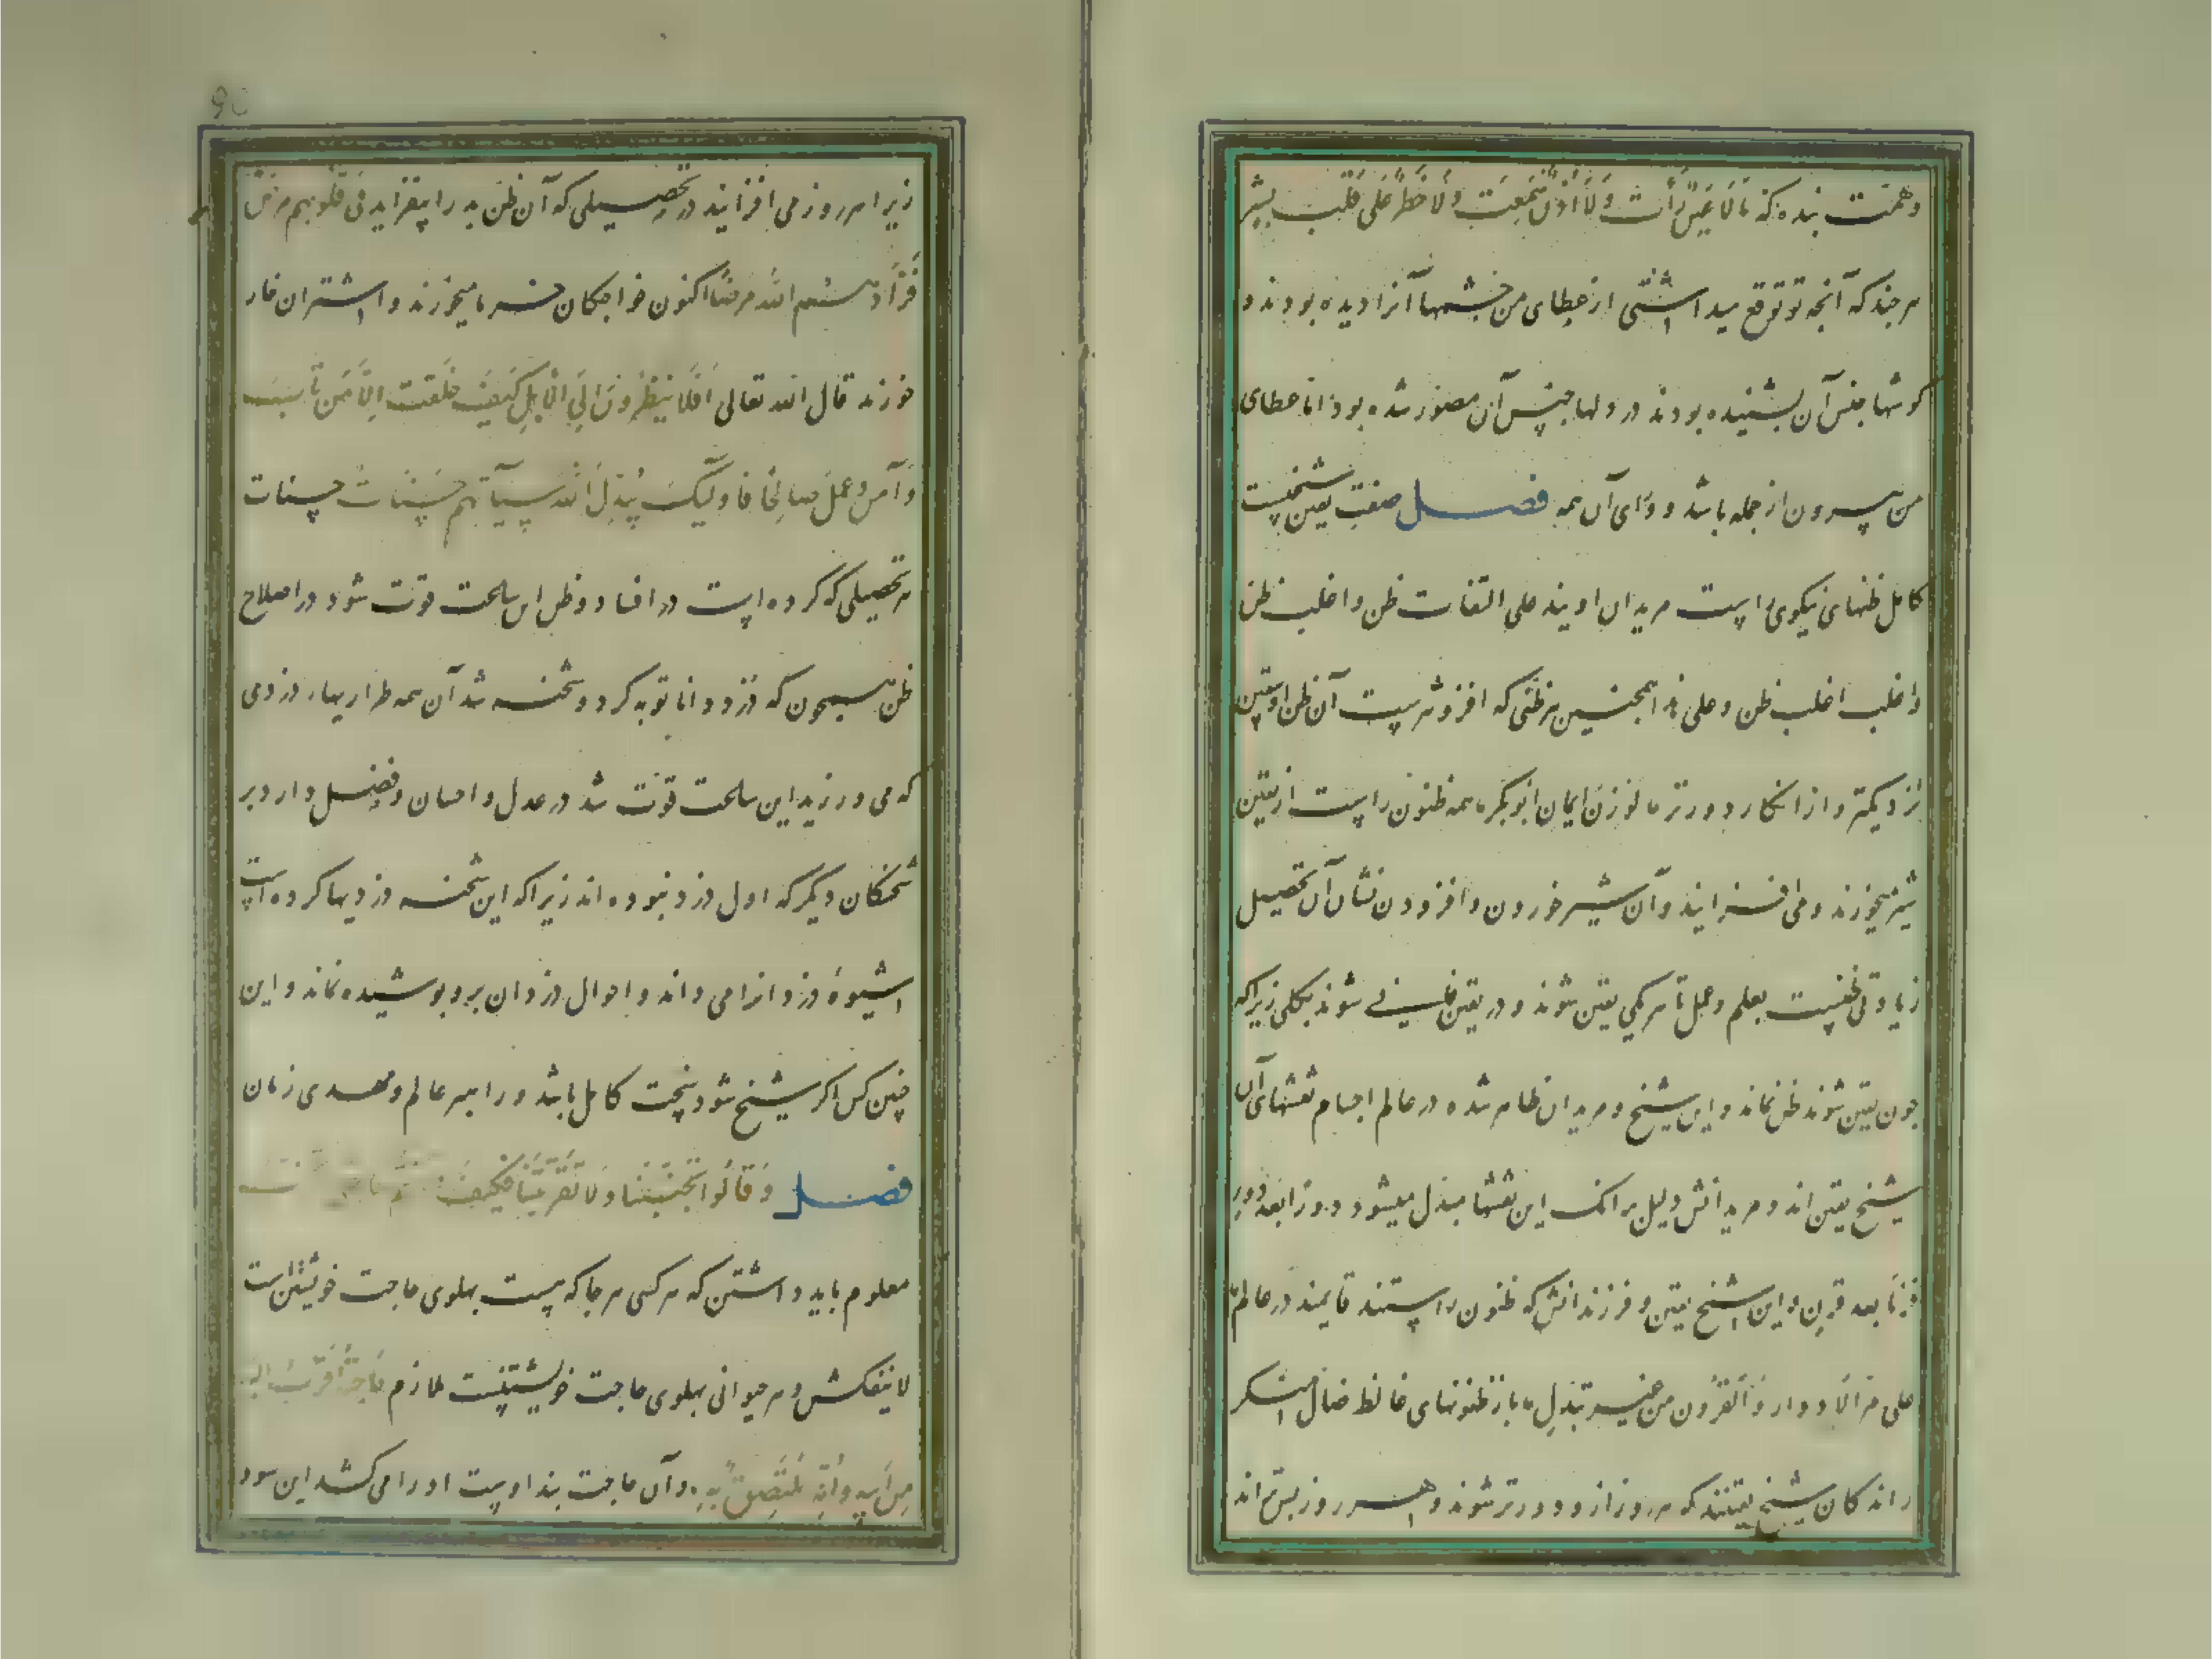 وهمت بنده که مَا لَا عَیْنٌ رَأَت وَلَا اُذُنٌ سَمِعَت وَلَا خَطَرَ عَلَی قَلبِ بشر
هرچند که آنچه تو توقع میداشتی از عطای من چشمها آنرا دیده بودند و
کوشها جنس آن بشنیده بودند در دلها جنس آن مصور شده بود اما عطای
من بیرون از جمله باشد و ورای آن همه فصل صفت یقین شیخیست
کامل ظنهای نیکوی راست مریدان اویند علی التفات ظن و اغلب ظن
و اغلب اغلب ظن و علی هذا همچنین هر ظنی که افزونترست آن ظن او بیقین
نزدیکتر و از انکار دورتر ما لَو وُزِنَ ایمان ابوبکر همه ظنون راست از یقین
شیر میخورند و می افزایند و آن شیر خوردن و افزودن نشان آن تحصیل
زیادتی ظنیست بعلم و عمل تا هر یکی یقین شوند و در یقین فانی شوند بکلی زیرا که
چون یقین شوند ظن نماند و این شیخ و مریدان ظاهر شده در عالم اجسام نقشهای آن
شیخ یقین اند و مریدانش دلیل بر آنک این نقشها مبدل میشود دورًا بعد دورٍ
قرنًا بعد قرن و این شیخ یقین و فرزندانش که ظنون راستند قایمند در عالم
علی مر الادوار و القرون من غیر تبدل باز ظنونهای غالط ضال منکر
راندکان شیخ یقینند که هر روز ازو دورتر شوند و هر روز پس اند
زیرا هر روز می افزایند در تحصیلی که آن ظن بد را بیفزاید فی قلوبهم مرض
فَزَادَهُم الله مرضًا اکنون خواجکان خرما میخورند و اشتران خار
خورند قال الله تعالی اَفَلَا یَنظُرُونَ اِلَی الاِبِلِ کَیفَ خُلِقَت اِلَّا مَن تَابَ
وَآمن و عمل صالحا فاولئک یُبَدِّلُ اللهُ سیآتهم حَسَنَاتٍ حسنات
هر تحصیلی که کرده است در افساد ظن این ساعت قوت شود در اصلاح
ظن همچون که دزد دانا توبه کرد و شحنه شد آن همه طراریهاء دزدی
که می ورزید این ساعت قوت شد در عدل و احسان و فضل دارد بر
شحنکان دیکر که اول دزد نبوده اند زیرا که این شحنه دزدیها کرده است
شیوهٔ دزدانرا می داند و احوال دزدان برو پوشیده نماند و این
چنین کس اکر شیخ شود سخت کامل باشد و راهبر عالم و مهدی زمان
فصل وَقَالُوا تَجَنَّبنَا وَلَا تَقرَبَنَّنَا فکیف
معلوم باید داشتن که هر کسی هر جا که هست پهلوی حاجت خویشتن است
لاینفکش و هر حیوانی پهلوی حاجت خویشتنست ملازم حَاجَتُهُ اَقرَبُ الیه
مِن اَبِیهِ وَاُمِّهِ مُلتَصِقٌ بِهِ و آن حاجت بند اوست او را می کشد این سو